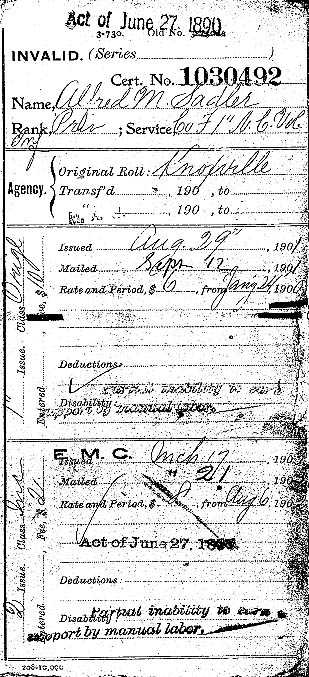 Act of June 27, 1890
3-730. Old No.
INVALID. (Series
Cert. No. 1030492
Name, Alfred M. Sadler
Rank, Priv ; Service, Co F 1" N.C. Vol
Agency. Original Roll: Knoxville
Transf'd 190 , to
" 190 , to
Issued Aug. 29" , 1901
Mailed Sept 12 , 1901
Rate and Period, $ 6 , from
Issue. Class
Entered
Deductions
Disability inability to
support by manual labor.
E. M. C.
Issued Mch 17 , 190
Mailed " 21 , 190
Rate and Period, $ 8 , from Aug 6,
Act of June 27, 1890.
2 Issue. Class
Entered
Deductions
Disability Partial inability to earn a
support by manual labor.